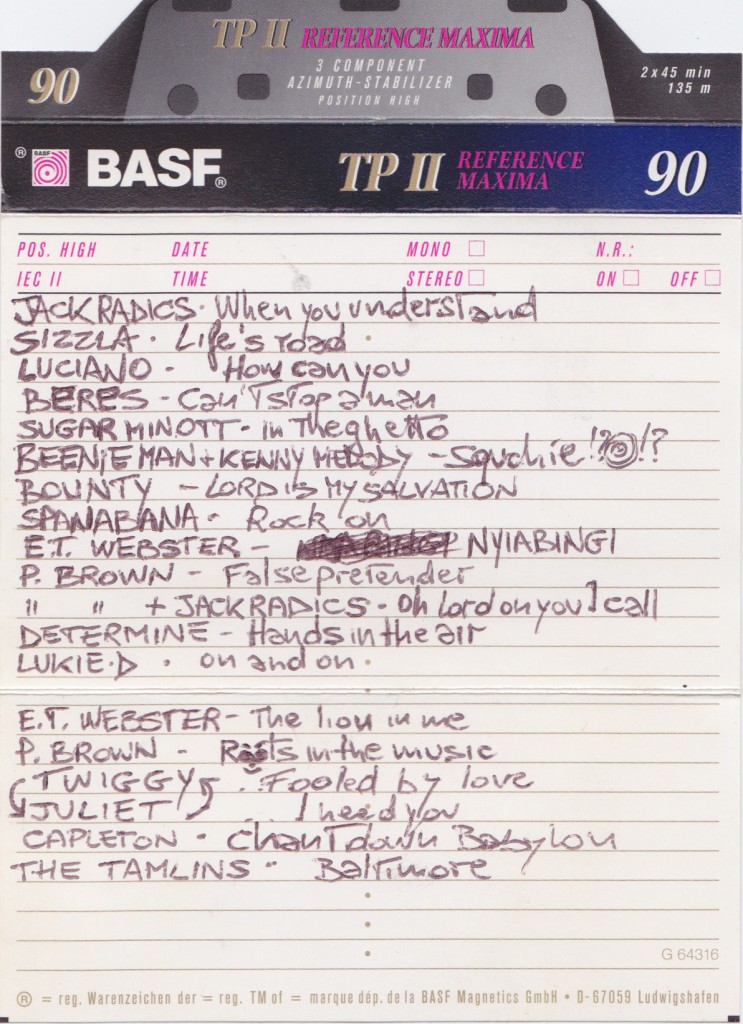 TP II REFERENCE MAXIMA
3 COMPONENT
AZIMUTH-STABILIZER
POSITION HIGH
90
2 x 45 min
135 m
® BASF BASF® TP II REFERENCE MAXIMA 90
POS. HIGH DATE MONO N.R.:
IEC II TIME STEREO ON OFF
JACK RADICS · When you understand
SIZZLA · Life's road
LUCIANO - How can you
BERES - Can't stop a man
SUGAR MINOTT - in the ghetto
BEENIE MAN + KENNY MELODY - Squchie !?!?
BOUNTY - LORD IS MY SALVATION
SPANABANA - Rock on
E.T. WEBSTER - NYIABINGI
P. BROWN - False pretender
" " + JACK RADICS - Oh lord on you I call
DETERMINE - Hands in the air
LUKIE.D · on and on
E.T. WEBSTER - The lion in me
P. BROWN - Roots in the music
TWIGGY .. Fooled by love
JULIET ... I need you
CAPLETON - Chant down Babylon
THE TAMLINS - Baltimore
G 64316
® = reg. Warenzeichen der = reg. TM of = marque dép. de la BASF Magnetics GmbH • D-67059 Ludwigshafen